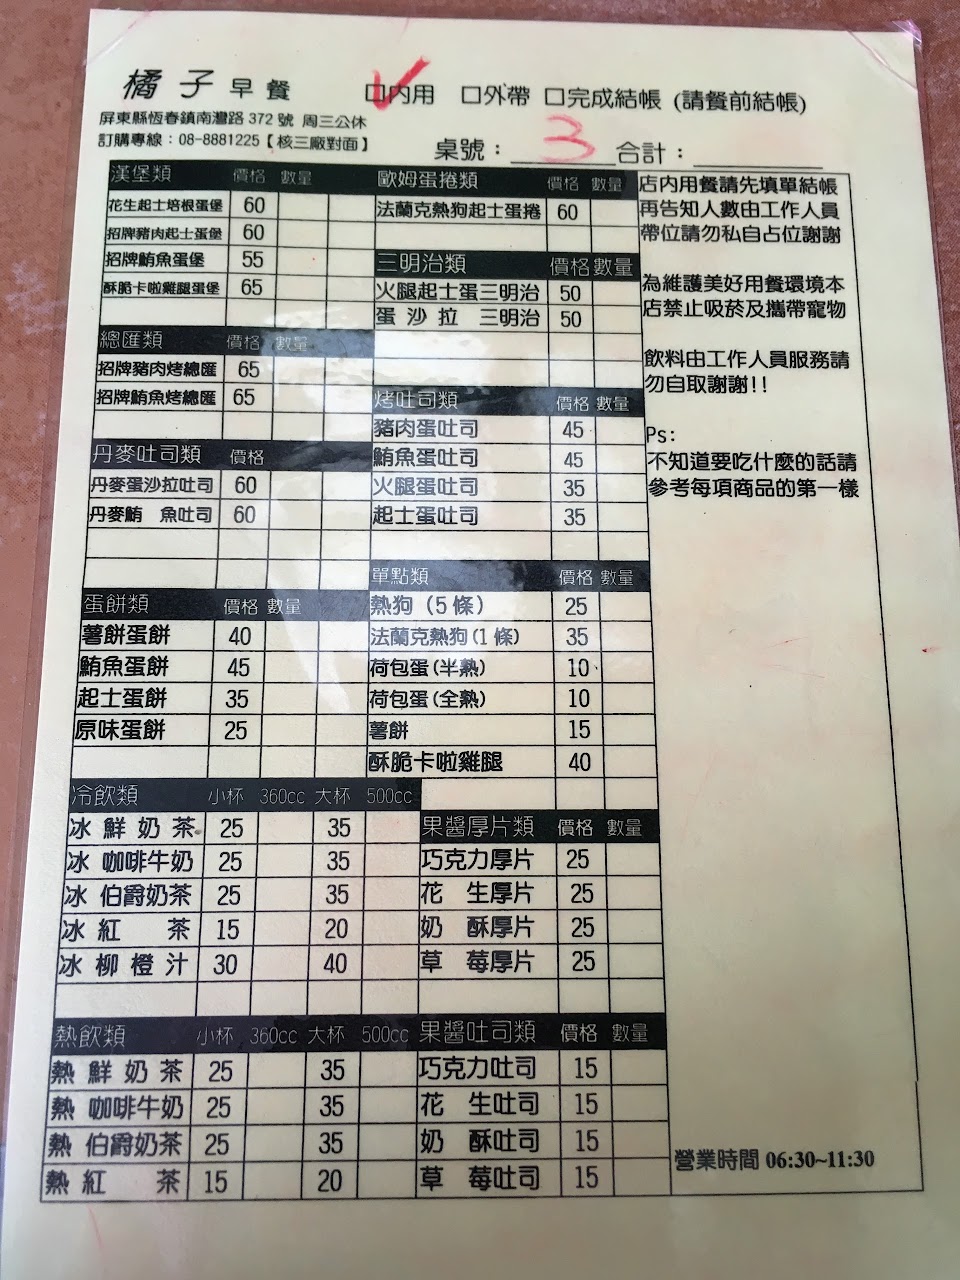 橘子早餐 ☑內用 □外帶 □完成結帳 (請餐前結帳)
屏東縣恆春鎮南灣路 372 號 周三公休
訂購專線：08-8881225【核三廠對面】
桌號：3 合計：
漢堡類 價格 數量
花生起士培根蛋堡 60
招牌豬肉起士蛋堡 60
招牌鮪魚蛋堡 55
酥脆卡啦雞腿蛋堡 65
總匯類 價格 數量
招牌豬肉烤總匯 65
招牌鮪魚烤總匯 65
丹麥吐司類 價格
丹麥蛋沙拉吐司 60
丹麥鮪 魚吐司 60
蛋餅類 價格 數量
薯餅蛋餅 40
鮪魚蛋餅 45
起士蛋餅 35
原味蛋餅 25
歐姆蛋捲類 價格 數量
法蘭克熱狗起士蛋捲 60
三明治類 價格 數量
火腿起士蛋三明治 50
蛋 沙 拉 三明治 50
烤吐司類 價格 數量
豬肉蛋吐司 45
鮪魚蛋吐司 45
火腿蛋吐司 35
起士蛋吐司 35
單點類 價格 數量
熱狗 (5 條) 25
法蘭克熱狗(1 條) 35
荷包蛋(半熟) 10
荷包蛋(全熟) 10
薯餅 15
酥脆卡啦雞腿 40
冷飲類 小杯 360cc 大杯 500cc
冰 鮮 奶 茶 25 35
冰 咖啡牛奶 25 35
冰 伯爵奶茶 25 35
冰 紅 茶 15 20
冰 柳 橙 汁 30 40
熱飲類 小杯 360cc 大杯 500cc
熱 鮮 奶 茶 25 35
熱 咖啡牛奶 25 35
熱 伯爵奶茶 25 35
熱 紅 茶 15 20
果醬厚片類 價格 數量
巧克力厚片 25
花 生厚片 25
奶 酥厚片 25
草 莓厚片 25
果醬吐司類 價格 數量
巧克力吐司 15
花 生吐司 15
奶 酥吐司 15
草 莓吐司 15
店內用餐請先填單結帳
再告知人數由工作人員
帶位請勿私自占位謝謝
為維護美好用餐環境本
店禁止吸菸及攜帶寵物
飲料由工作人員服務請
勿自取謝謝!!
Ps:
不知道要吃什麼的話請
參考每項商品的第一樣
營業時間 06:30~11:30